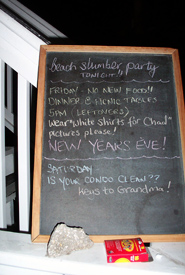 beach slumber party
TONIGHT!!
FRIDAY - NO NEW FOOD!!
DINNER @ PICNIC TABLES
5PM (LEFTOVERS)
wear "white shirts for Chad"
pictures please!
NEW YEARS EVE!
SATURDAY
IS YOUR CONDO CLEAN??
Keys to Grandma!